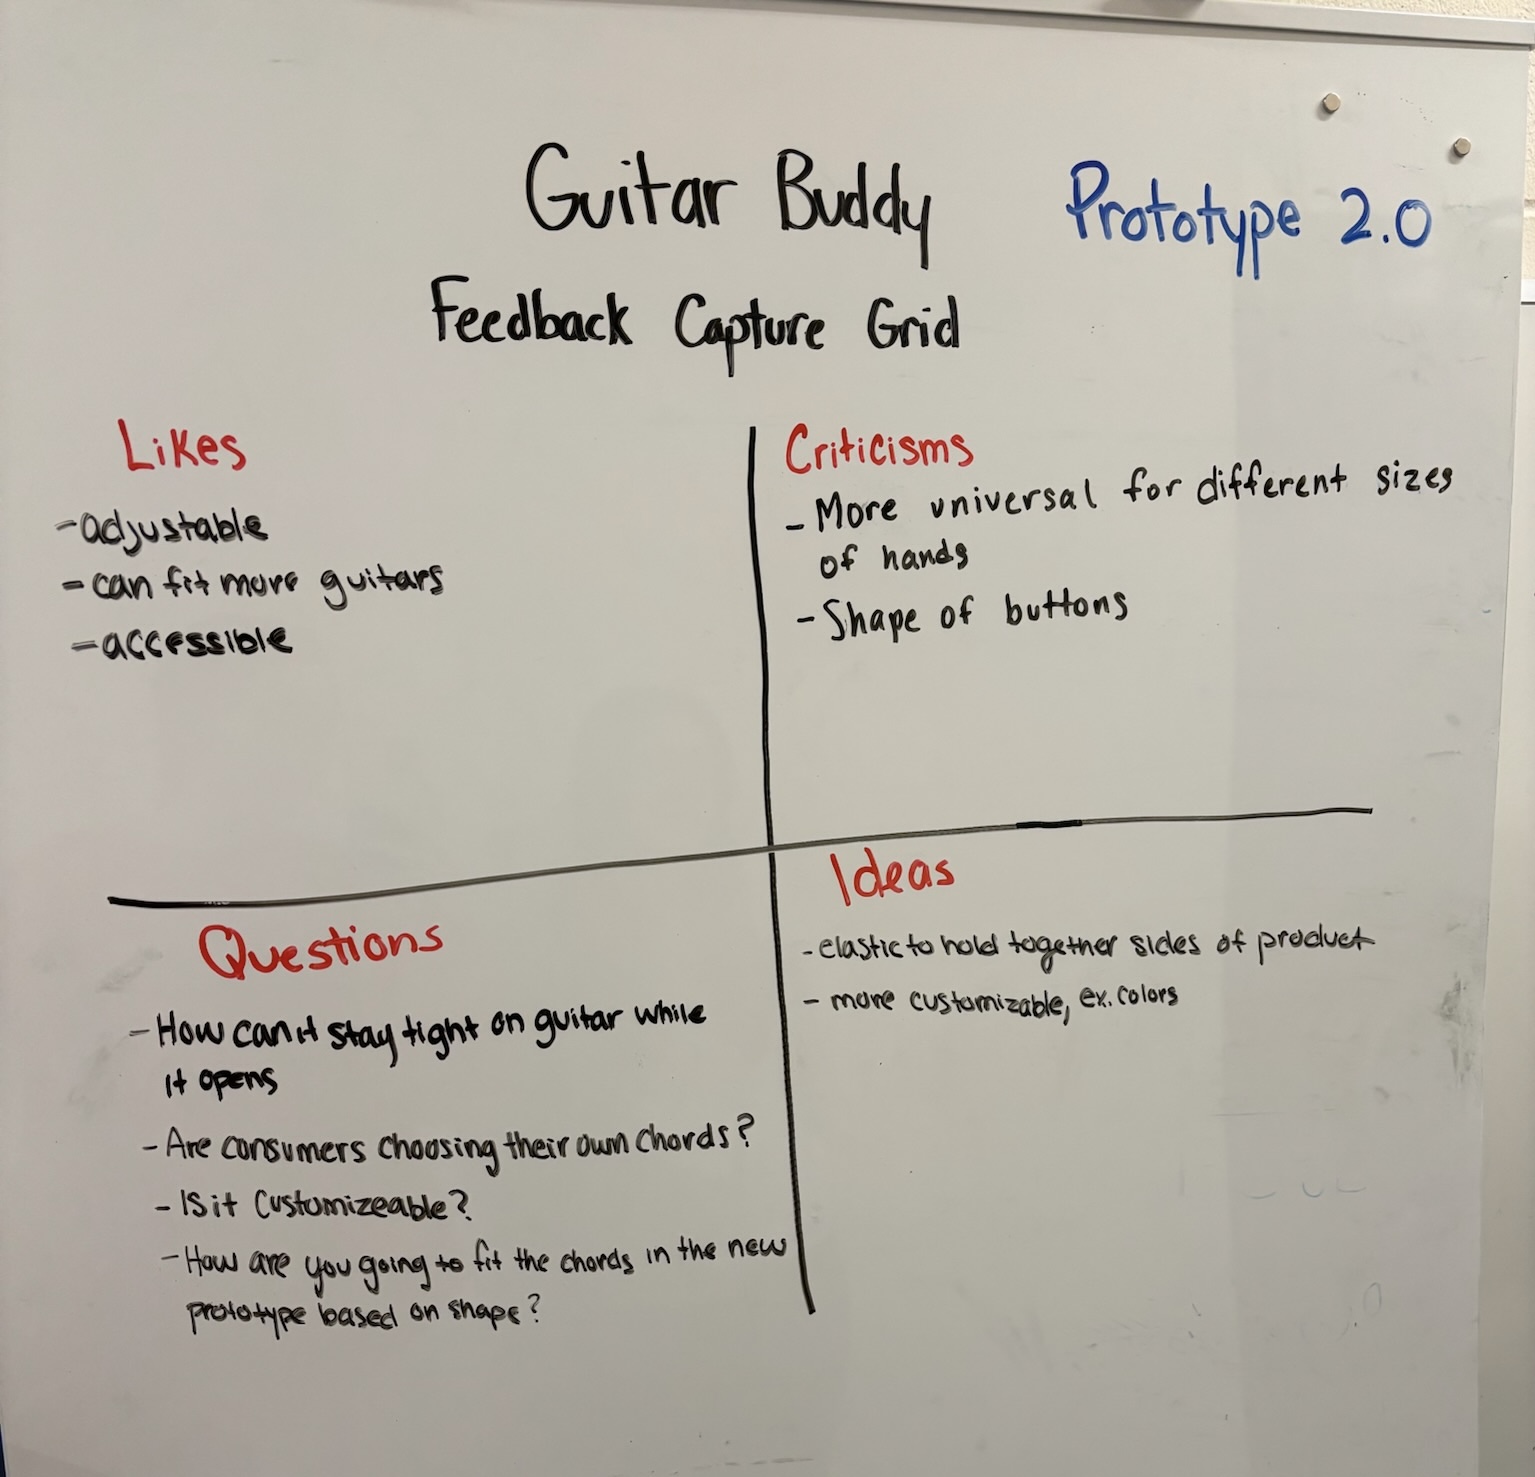 Guitar Buddy Prototype 2.0
Feedback Capture Grid
Likes
-adjustable
-can fit more guitars
-accessible
Criticisms
-More universal for different sizes
of hands
-Shape of buttons
Questions
-How can it stay tight on guitar while
it opens
-Are consumers choosing their own chords?
-Is it customizeable?
-How are you going to fit the chords in the new
prototype based on shape?
Ideas
-elastic to hold together sides of product
-more customizable, ex. colors